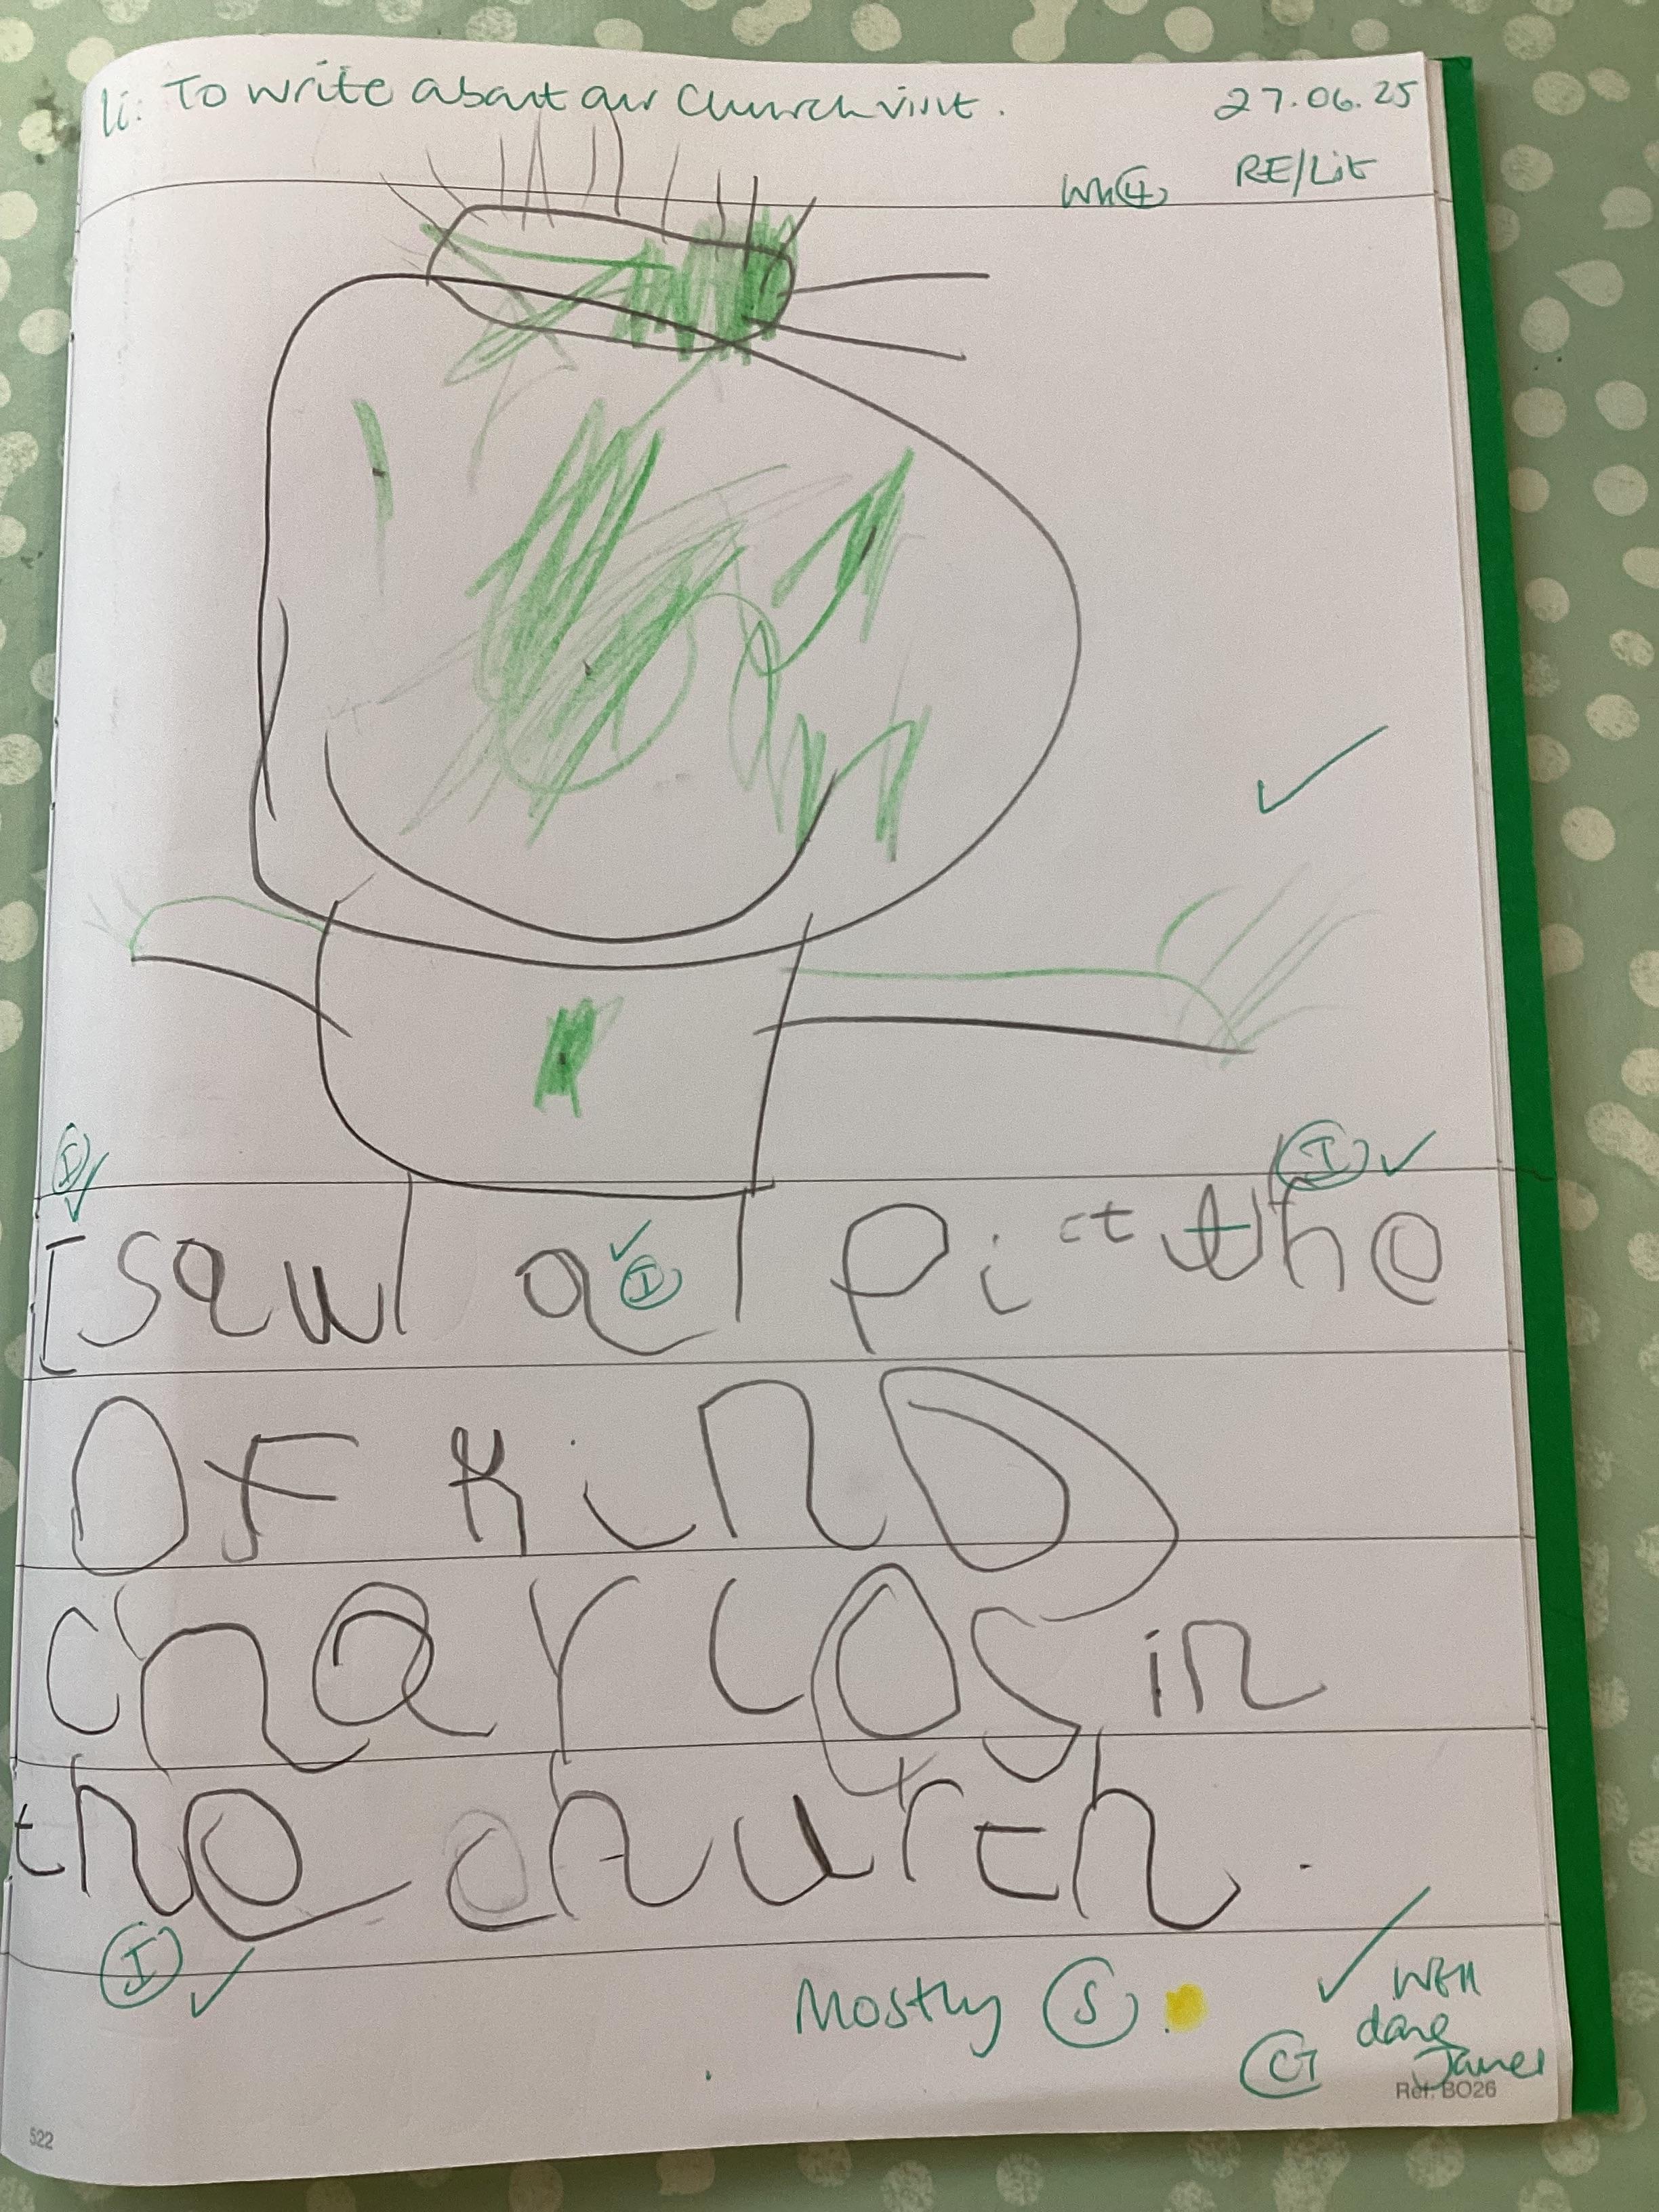 li: To write about our Church visit. 27.06.25
Wk④ RE/Lit
I ✓ I ✓
I saw a pict the
✓ I
OF KinD
chaRLOS in
the church.
I ✓
Mostly S. ✓ Well
done
CT James
Ref: BO26
522